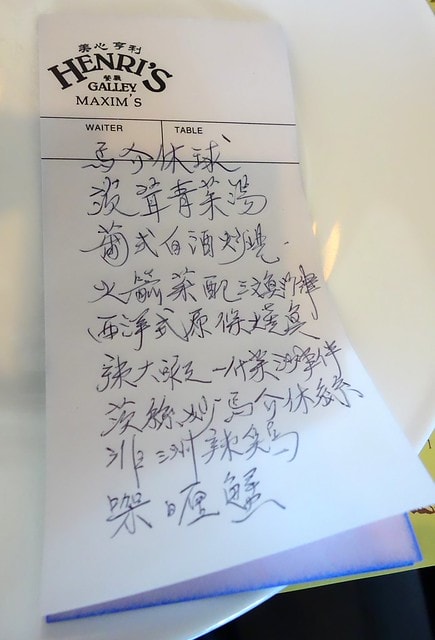 美心亨利
HENRI'S
餐廳
GALLEY
MAXIM'S
WAITER TABLE
馬介休球
茨茸青菜湯
葡式白酒炒蜆
火箭菜配三文魚沙律
西洋式原條燒魚
辣大 什菜沙律伴
茨絲炒馬介休絲
非洲辣
架喱蟹